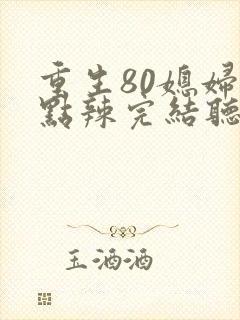 重生80媳婦
點辣完結聽
玉酒酒